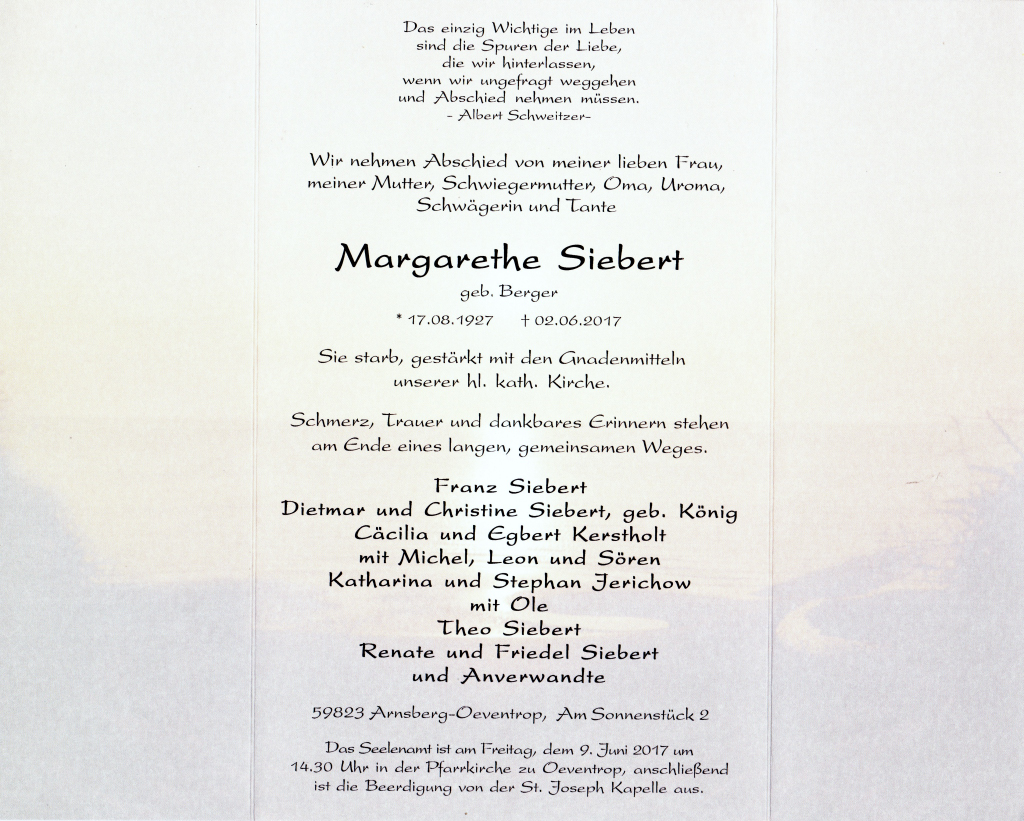 Das einzig Wichtige im Leben
sind die Spuren der Liebe,
die wir hinterlassen,
wenn wir ungefragt weggehen
und Abschied nehmen müssen.
- Albert Schweitzer-
Wir nehmen Abschied von meiner lieben Frau,
meiner Mutter, Schwiegermutter, Oma, Uroma,
Schwägerin und Tante
Margarethe Siebert
geb. Berger
* 17.08.1927 † 02.06.2017
Sie starb, gestärkt mit den Gnadenmitteln
unserer hl. kath. Kirche.
Schmerz, Trauer und dankbares Erinnern stehen
am Ende eines langen, gemeinsamen Weges.
Franz Siebert
Dietmar und Christine Siebert, geb. König
Cäcilia und Egbert Kerstholt
mit Michel, Leon und Sören
Katharina und Stephan Jerichow
mit Ole
Theo Siebert
Renate und Friedel Siebert
und Anverwandte
59823 Arnsberg-Oeventrop, Am Sonnenstück 2
Das Seelenamt ist am Freitag, dem 9. Juni 2017 um
14.30 Uhr in der Pfarrkirche zu Oeventrop, anschließend
ist die Beerdigung von der St. Joseph Kapelle aus.